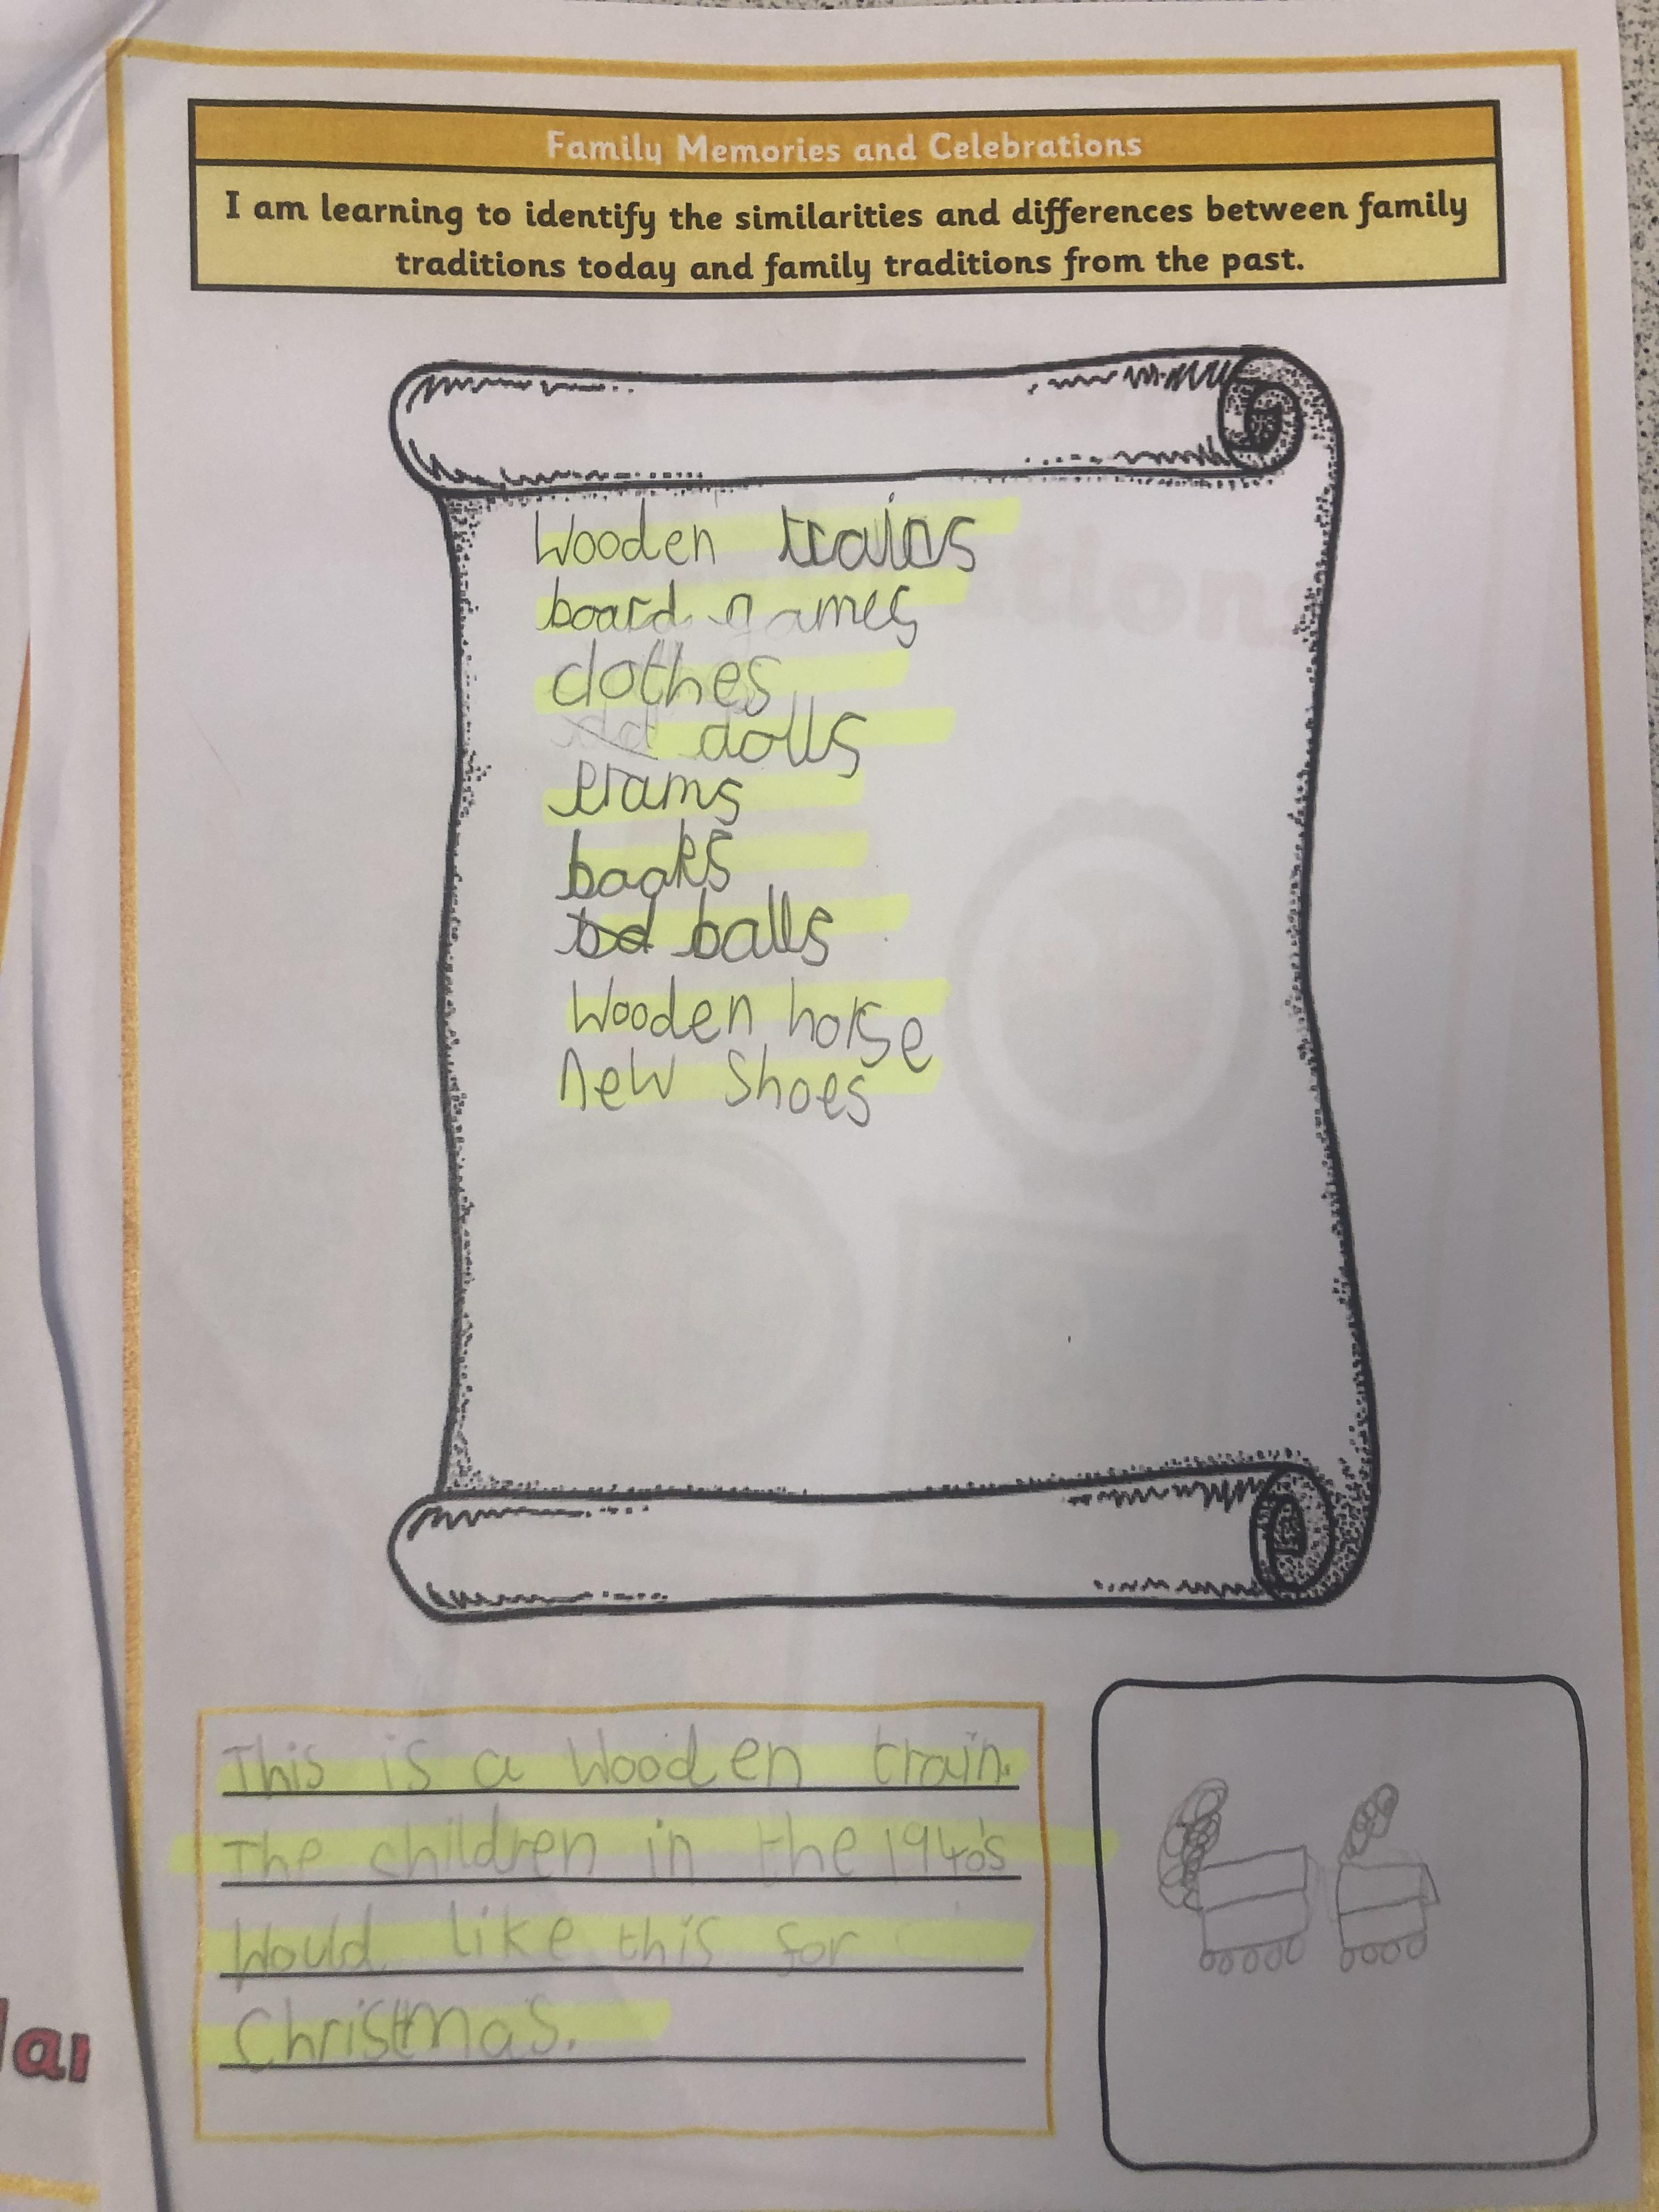 Family Memories and Celebrations
I am learning to identify the similarities and differences between family
traditions today and family traditions from the past.
Wooden trains
board games
clothes
dolls
prams
books
balls
Wooden horse
New Shoes
This is a Wooden train.
The children in the 1940's
Would like this for
Christmas.